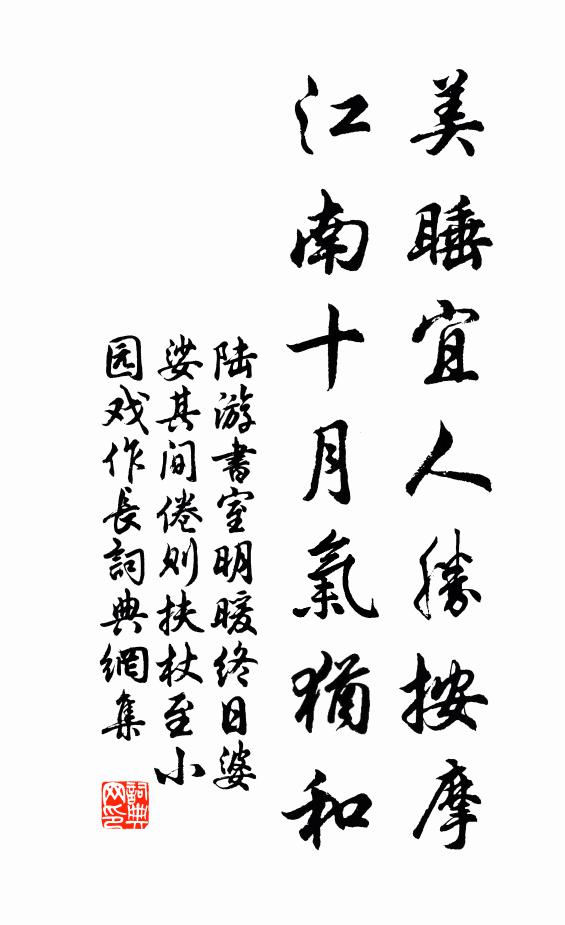 美睡宜人勝按摩
江南十月氣猶和
陆游書室明暖终日婆
娑其间倦则扶杖至小
园戏作長詞典網集
詞典
网印